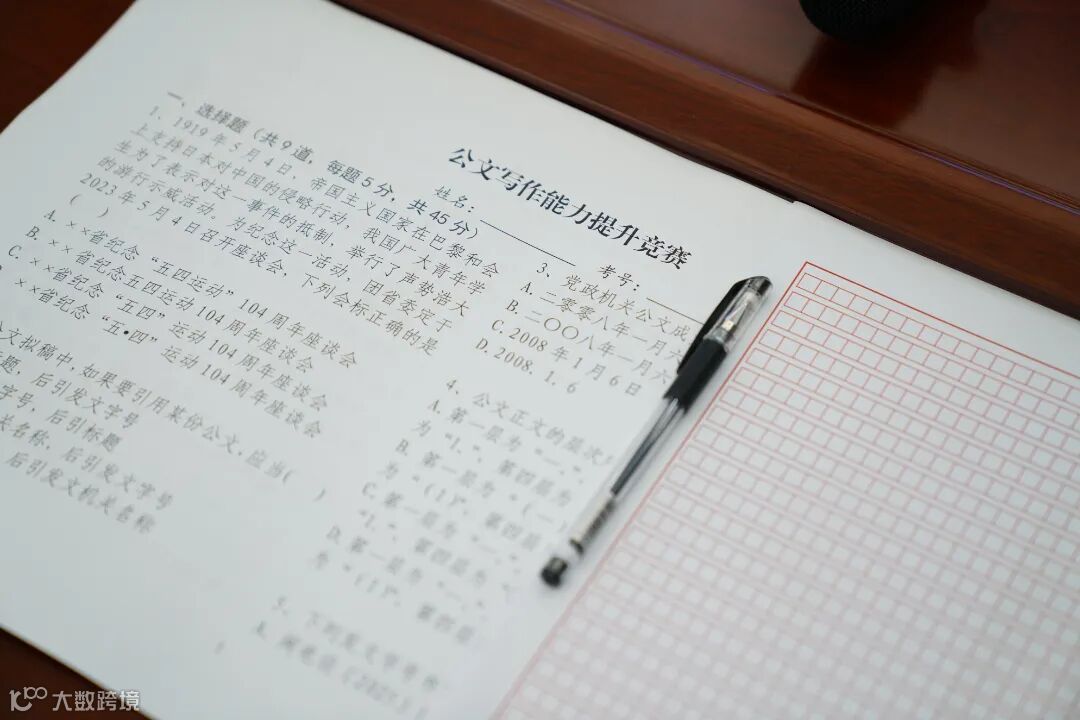 公文写作能力提升竞赛
姓名: 考号:
一、选择题（共9道，每题5分，共45分）
1、1919年5月4日，帝国主义国家在巴黎和会
上支持日本对中国的侵略行动，我国广大青年学
生为了表示对这一事件的抵制，举行了声势浩大
的游行示威活动。为纪念这一活动，团省委定于
2023年5月4日召开座谈会，下列会标正确的是
（ ）
A. ××省纪念“五四运动”104周年座谈会
B. ××省纪念五四运动104周年座谈会
C. ××省纪念“五四”运动104周年座谈会
××省纪念“五•四”运动104周年座谈会
公文拟稿中，如果要引用某份公文，应当( )
题，后引发文字号
字号，后引标题
关名称，后引发文字号
后引发文机关名称
3、党政机关公文成
A. 二零零八年一月六
B. 二〇〇八年一月六
C. 2008年1月6日
D. 2008.1.6
4、公文正文的层次
A. 第一层为“一、”
为“1.”，第四层为
B. 第一层为“（一）
为“(1)”，第四层
C. 第一层为“一、”
“1.”，第四层为
D. 第一层为“一、”
为“(1)”，第四层
5、下列发文字号
大数跨境